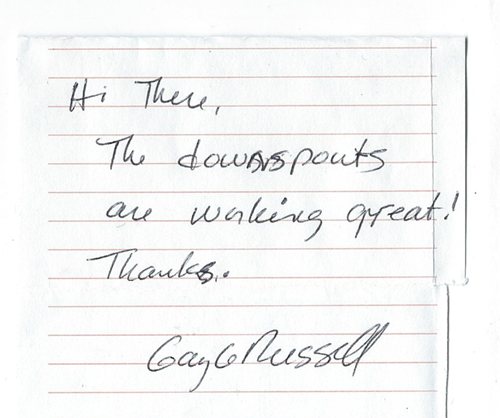 Hi There,
The downspouts
are working great!
Thanks.
Gayle Russell